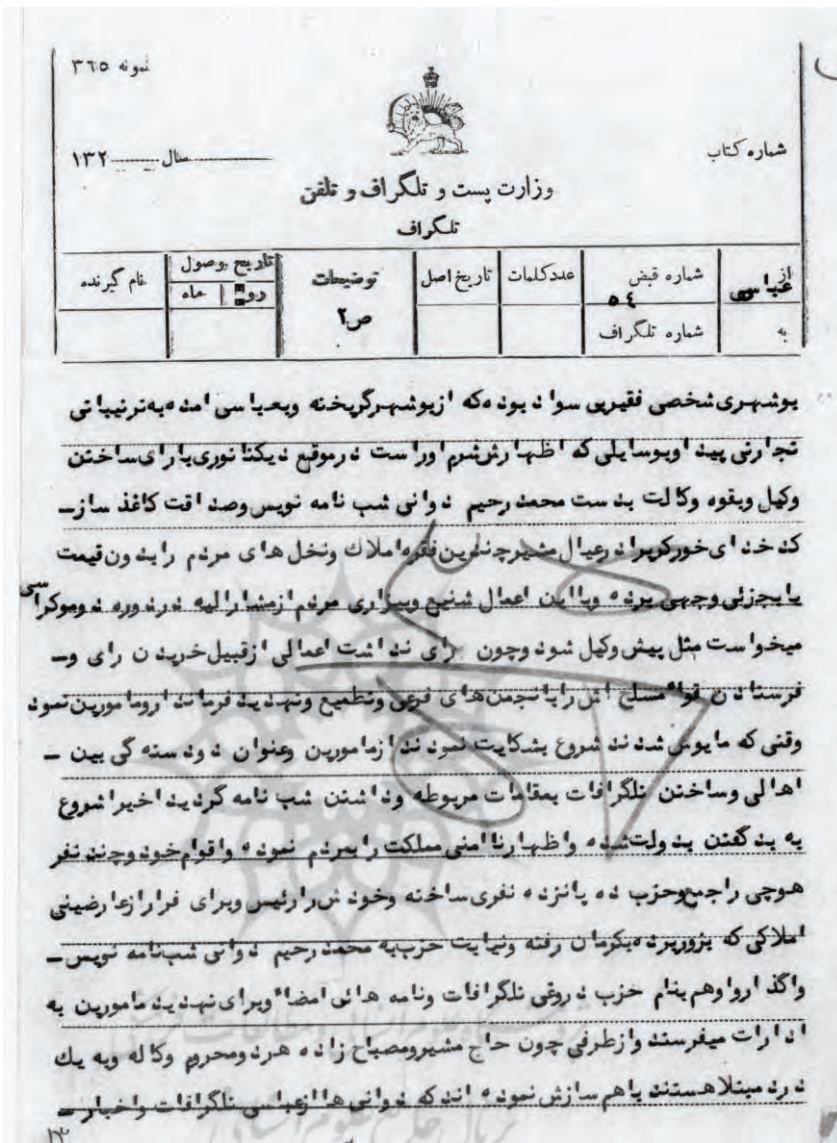 نمونه ۳٦٥
شماره کتاب
سال ۱۳۲
وزارت پست و تلگراف و تلفن
تلگراف
از عباسی
شماره قبض ٥٤
عدد کلمات
تاریخ اصل
توضیحات
تاریخ وصول
نام گیرنده
روز | ماه
به
شماره تلگراف
ص۲
بوشهری شخصی فقیر بی سواد بوده که ازبوشهرگریخته وبعباسی امده به ترتیباتی
تجارتی پیدا وبوسایلی که اظهارش شرم اوراست درموقع دیکتاتوری بارای ساختن
وکیل وبقوه وکالت بدست محمد رحیم دوانی شب نامه نویس وصداقت کاغذ ساز ـ
کدخدای خورکربرادرعیال مشیرچندین فقره املاك ونخل های مردم رابدون قیمت
یابجزئی وجهی برده وبااین اعمال شنیع وبیزاری مردم ازمشارالیه دردوره دموکراسی
میخواست مثل پیش وکیل شود وچون رای نداشت اعمالی ازقبیل خریدن رای و ـ
فرستادن قواء مسلح اش رابانجمن های فرعی وتطمیع وتهدید فرماندارومامورین نمود
وقتی که مایوس شدند شروع بشکایت نمودند ازمامورین وعنوان دودسته گی بین ـ
اهالی وساختن تلگرافات بمقامات مربوطه وداشتن شب نامه گردید اخیرا شروع
به بد گفتن بدولت شده واظهارناامنی مملکت رابمردم نموده واقوام خود وچند نفر
هوچی راجمع وحزب ده پانزده نفری ساخته وخودش رارئیس وبرای فرارازعارضینی
املاکی که بزوربرده بکرمان رفته ونیابت حزب به محمد رحیم دوانی شب نامه نویس ـ
واگذارواوهم بنام حزب دروغی تلگرافات ونامه هائی امضاء وبرای تهدید مامورین به
ادارات میفرستد وازطرفی چون حاج مشیرومصباح زاده هردومحروم وکاله وبه یك
درد مبتلا هستند باهم سازش نموده اند که دوانی ها ازعباسی تلگرافات واخبار ـ